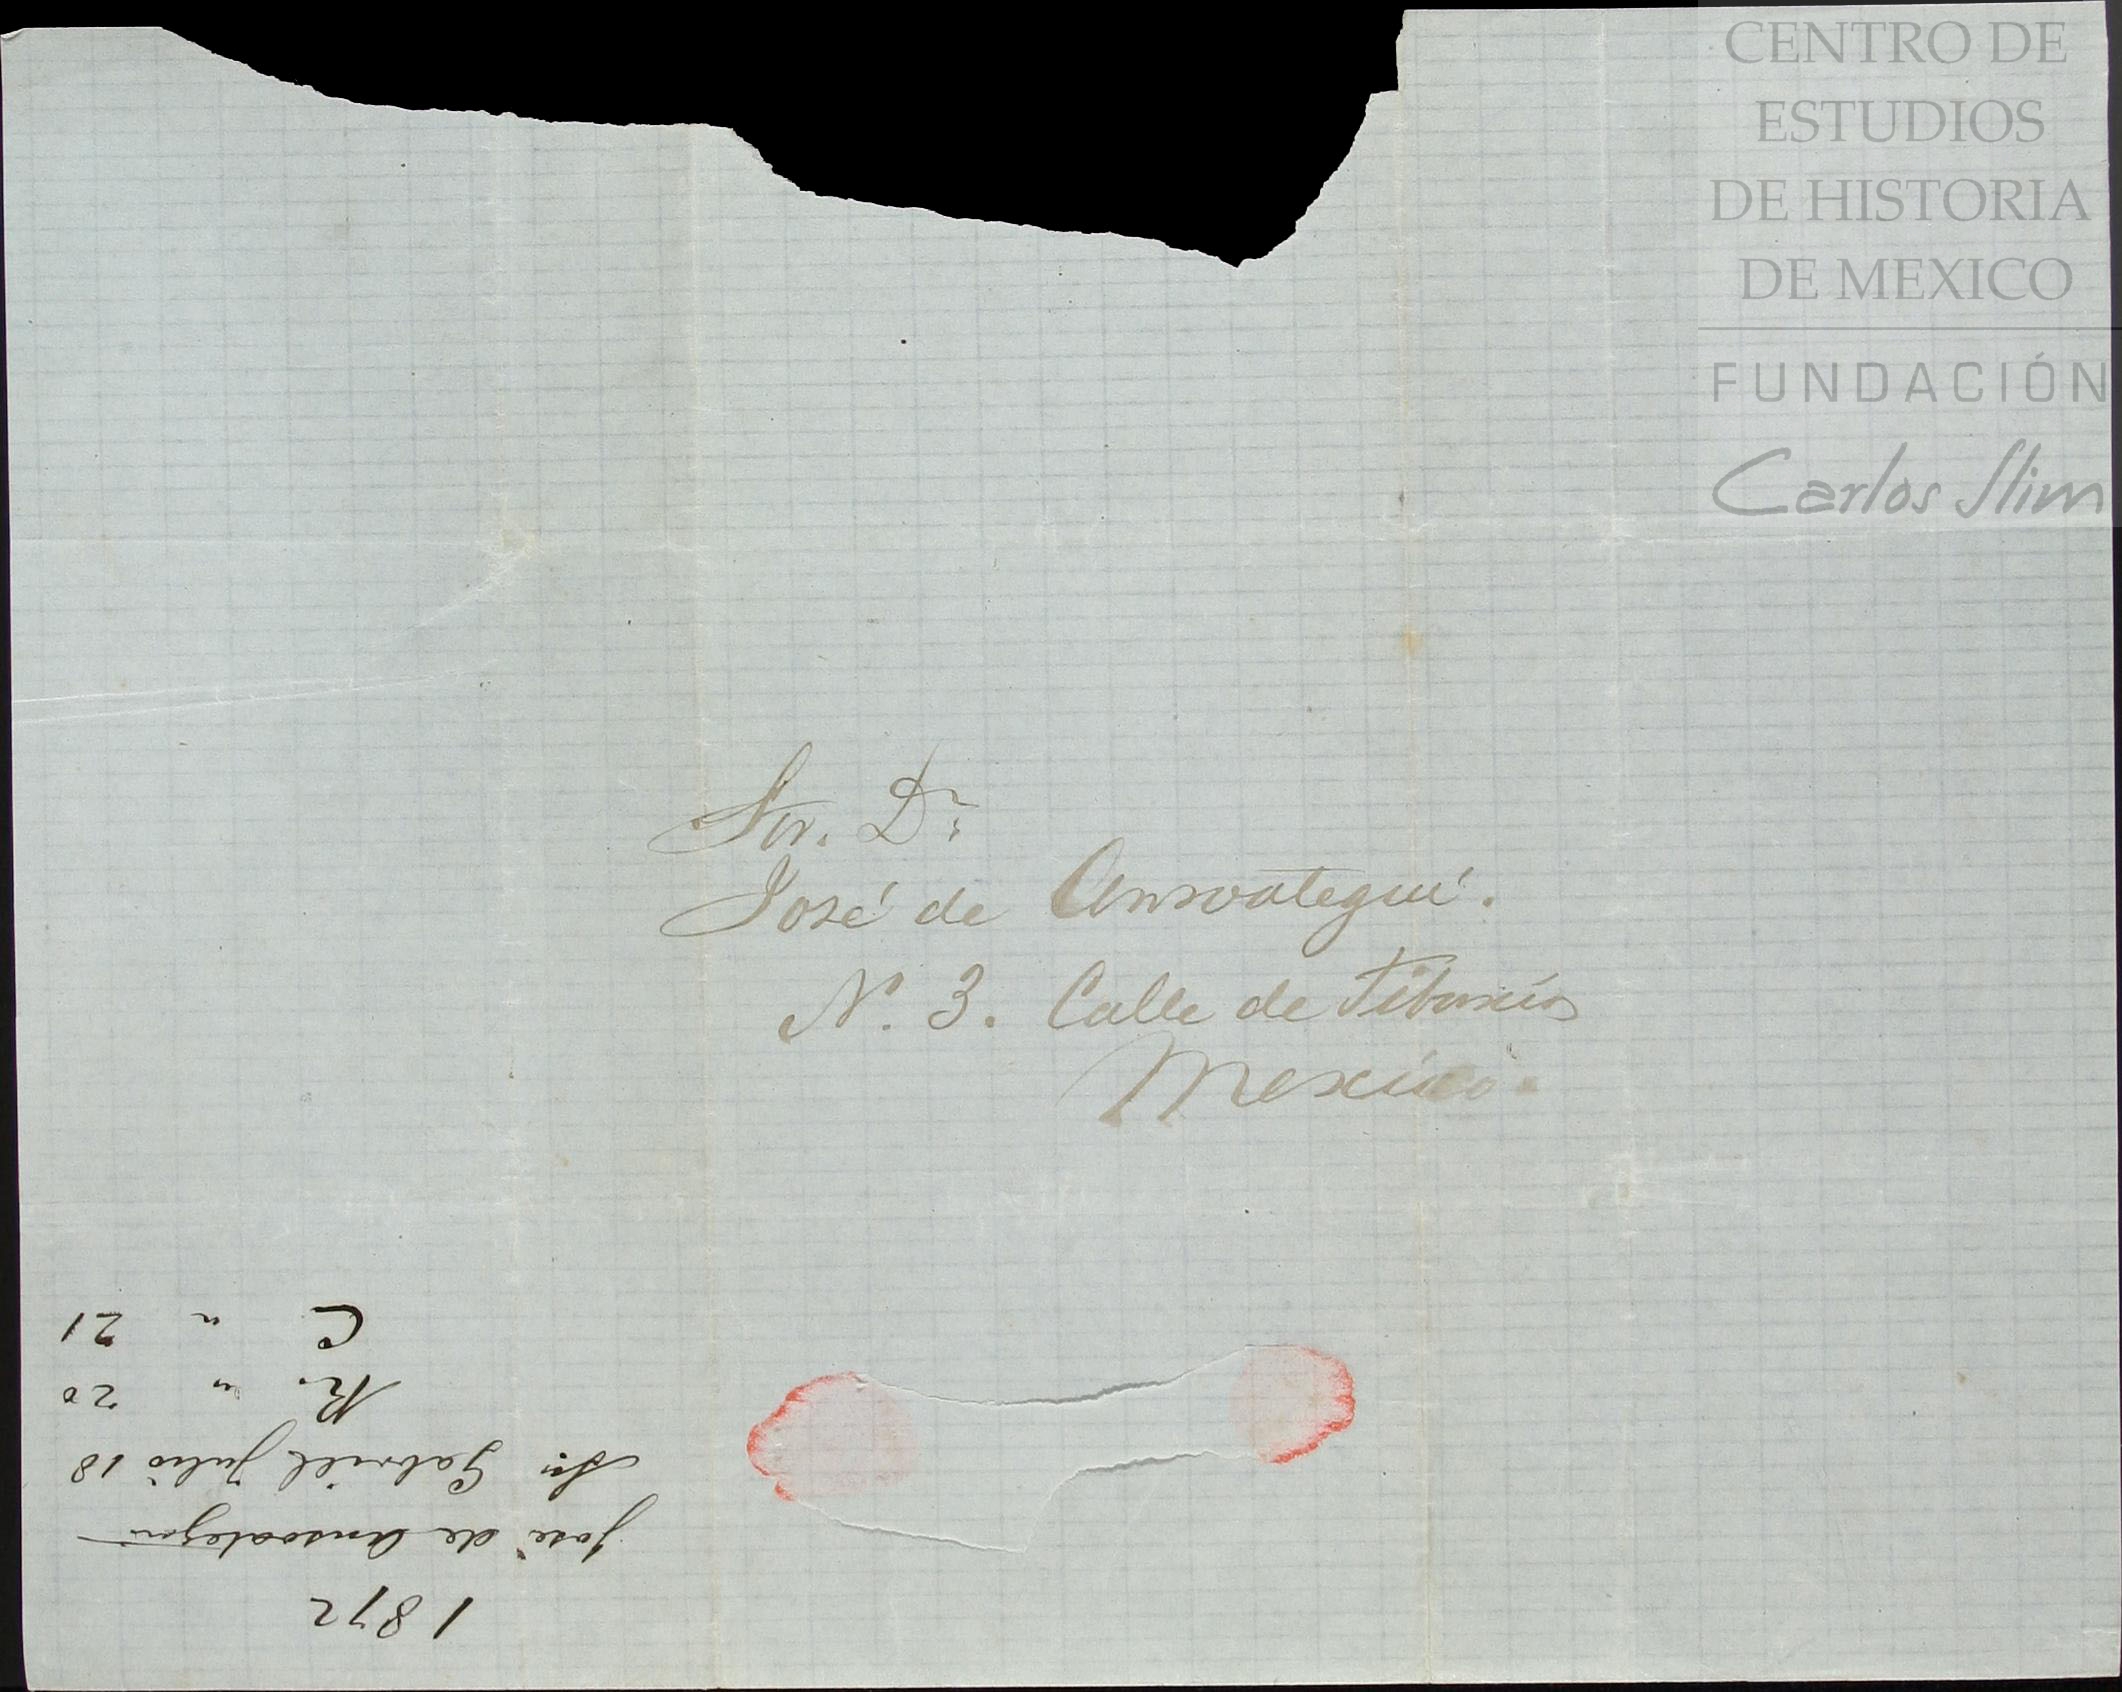 CENTRO DE
ESTUDIOS
DE HISTORIA
DE MEXICO
FUNDACIÓN
Carlos Slim
Sor. Dn.
José de Ansoategui.
N. 3. Calle de Tiburcio
Mexico.
1872
José de Ansoategui
Sn Gabriel Julio 18
R. " 20
C " 21